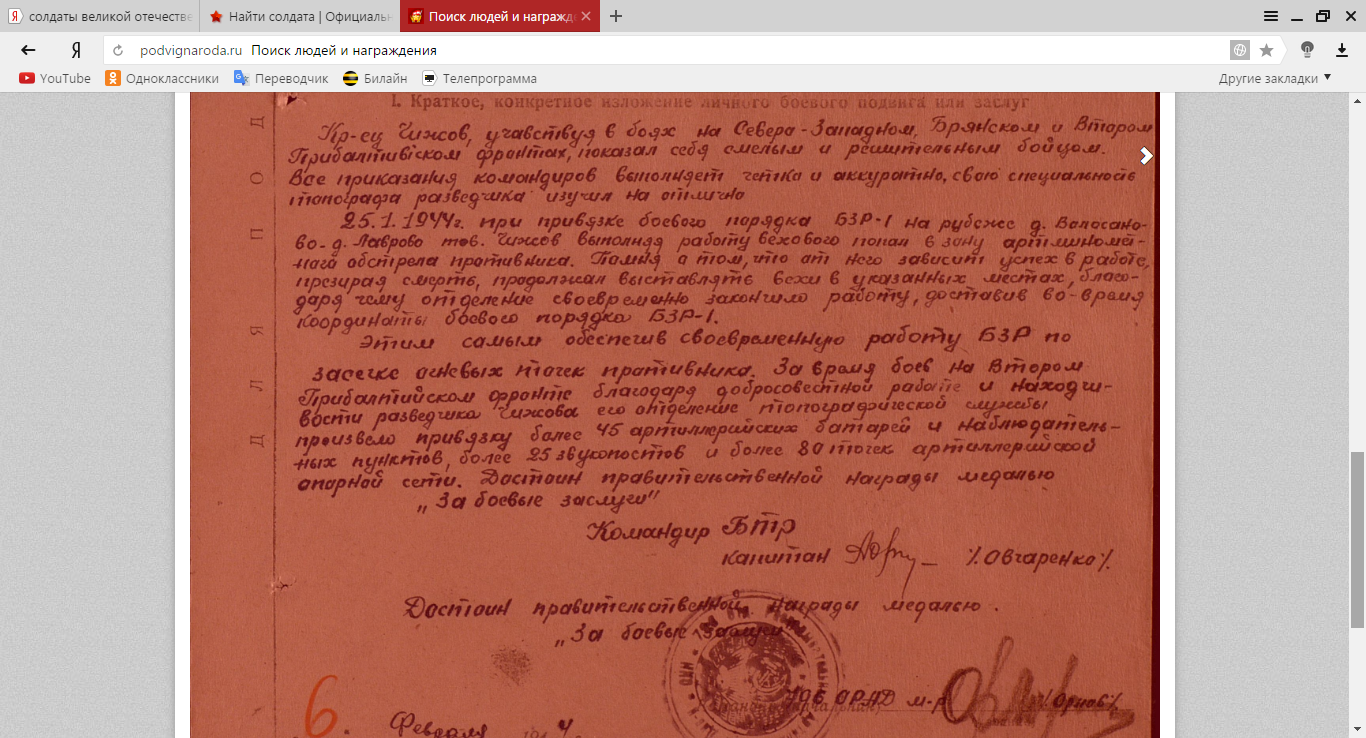 солдаты великой отечестве
Найти солдата | Официальн
Поиск людей и награжд
podvignaroda.ru Поиск людей и награждения
YouTube Одноклассники Переводчик Билайн Телепрограмма Другие закладки
ДЛЯ ПОД
I. Краткое, конкретное изложение личного боевого подвига или заслуг
Кр-ец Чижов, учавствуя в боях на Северо-Западном, Брянском и Втором
Прибалтийском фронтах, показал себя смелым и решительным бойцом.
Все приказания командиров выполняет четко и аккуратно, свою специальность
топографа разведчика изучил на отлично
25.1.1944г. при привязке боевого порядка БЗР-1 на рубеже д. Волосано-
во-д. Лаврово тов. Чижов выполняя работу вехового попал в зону артминомет-
ного обстрела противника. Помня о том, что от него зависит успех в работе,
презирая смерть, продолжал выставлять вехи в указанных местах, благо-
даря чему отделение своевременно закончило работу, доставив во-время
координаты боевого порядка БЗР-1.
Этим самым обеспечив своевременную работу БЗР по
засечке огневых точек противника. За время боев на Втором
Прибалтийском фронте благодаря добросовестной работе и находчи-
вости разведчика Чижова его отделение топографической службы
произвело привязку более 45 артиллерийских батарей и наблюдатель-
ных пунктов, более 25 звукопостов и более 80 точек артиллерийской
опорной сети. Достоин правительственной награды медалью
„За боевые заслуги"
Командир БТР
капитан /Овчаренко/.
Достоин правительственной награды медалью.
„За боевые заслуги"
ОРАД м-р
6.
Февраля 194 4